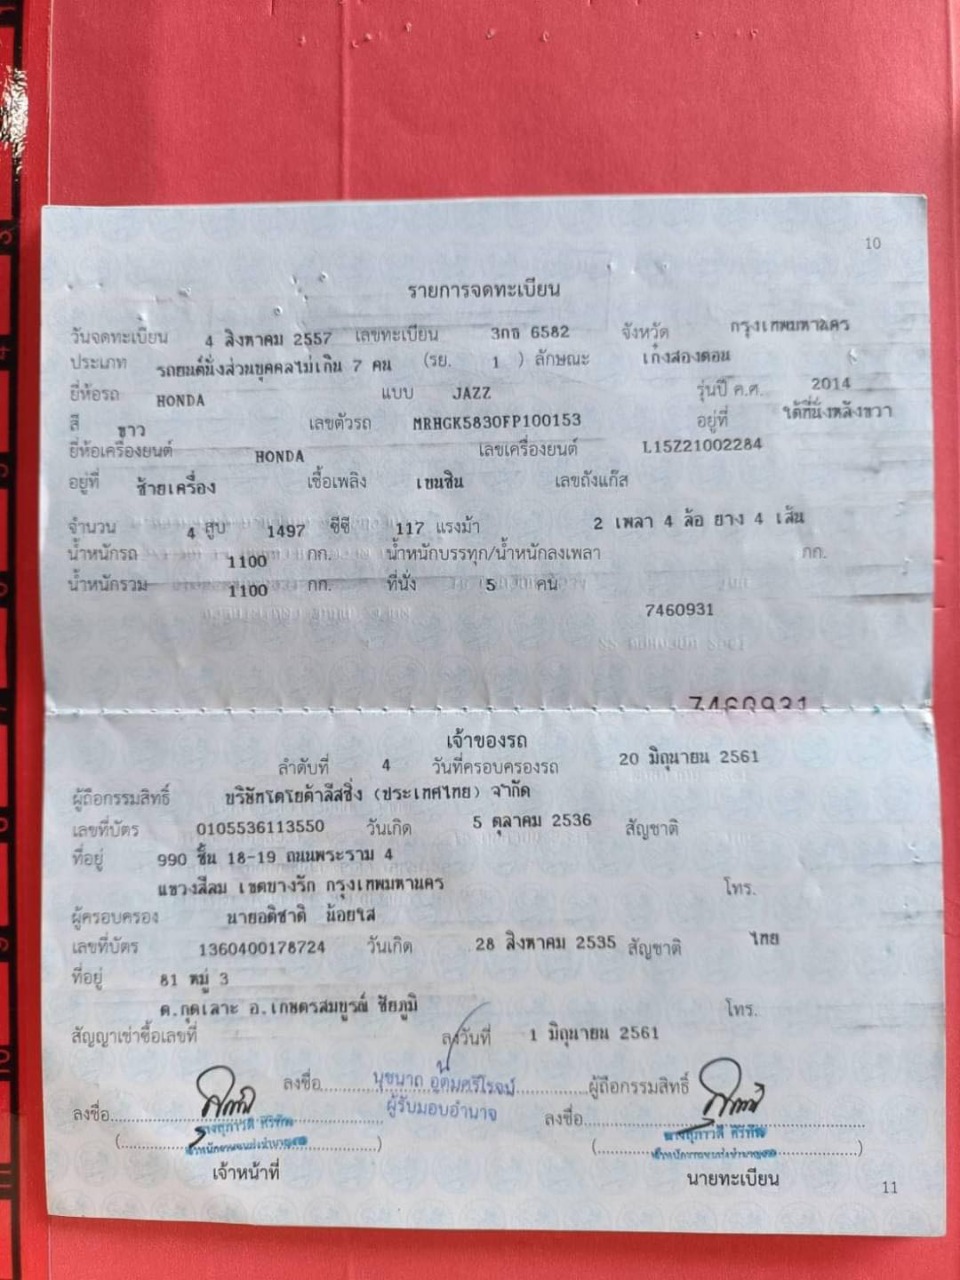 10
รายการจดทะเบียน
วันจดทะเบียน 4 สิงหาคม 2557 เลขทะเบียน 3กธ 6582 จังหวัด กรุงเทพมหานคร
ประเภท รถยนต์นั่งส่วนบุคคลไม่เกิน 7 คน (รย. 1 ) ลักษณะ เก๋งสองตอน
ยี่ห้อรถ HONDA แบบ JAZZ รุ่นปี ค.ศ. 2014
สี ขาว เลขตัวรถ MRHGK5830FP100153 อยู่ที่ ใต้ที่นั่งหลังขวา
ยี่ห้อเครื่องยนต์ HONDA เลขเครื่องยนต์ L15Z21002284
อยู่ที่ ซ้ายเครื่อง เชื้อเพลิง เบนซิน เลขถังแก๊ส
จำนวน 4 สูบ 1497 ซีซี 117 แรงม้า 2 เพลา 4 ล้อ ยาง 4 เส้น
น้ำหนักรถ 1100 กก. น้ำหนักบรรทุก/น้ำหนักลงเพลา กก.
น้ำหนักรวม 1100 กก. ที่นั่ง 5 คน
7460931
7460931
เจ้าของรถ
ลำดับที่ 4 วันที่ครอบครองรถ 20 มิถุนายน 2561
ผู้ถือกรรมสิทธิ์ บริษัทโตโยต้าลีสซิ่ง (ประเทศไทย) จำกัด
เลขที่บัตร 0105536113550 วันเกิด 5 ตุลาคม 2536 สัญชาติ
ที่อยู่ 990 ชั้น 18-19 ถนนพระราม 4
แขวงสีลม เขตบางรัก กรุงเทพมหานคร โทร.
ผู้ครอบครอง นายอติชาติ น้อยใส
เลขที่บัตร 1360400178724 วันเกิด 28 สิงหาคม 2535 สัญชาติ ไทย
ที่อยู่ 81 หมู่ 3
ต.กุดเลาะ อ.เกษตรสมบูรณ์ ชัยภูมิ โทร.
สัญญาเช่าซื้อเลขที่ ลงวันที่ 1 มิถุนายน 2561
ลงชื่อ นุชนาถ อุดมศรีโรจน์ ผู้ถือกรรมสิทธิ์
ผู้รับมอบอำนาจ
ลงชื่อ ลงชื่อ
เจ้าหน้าที่ นายทะเบียน
11